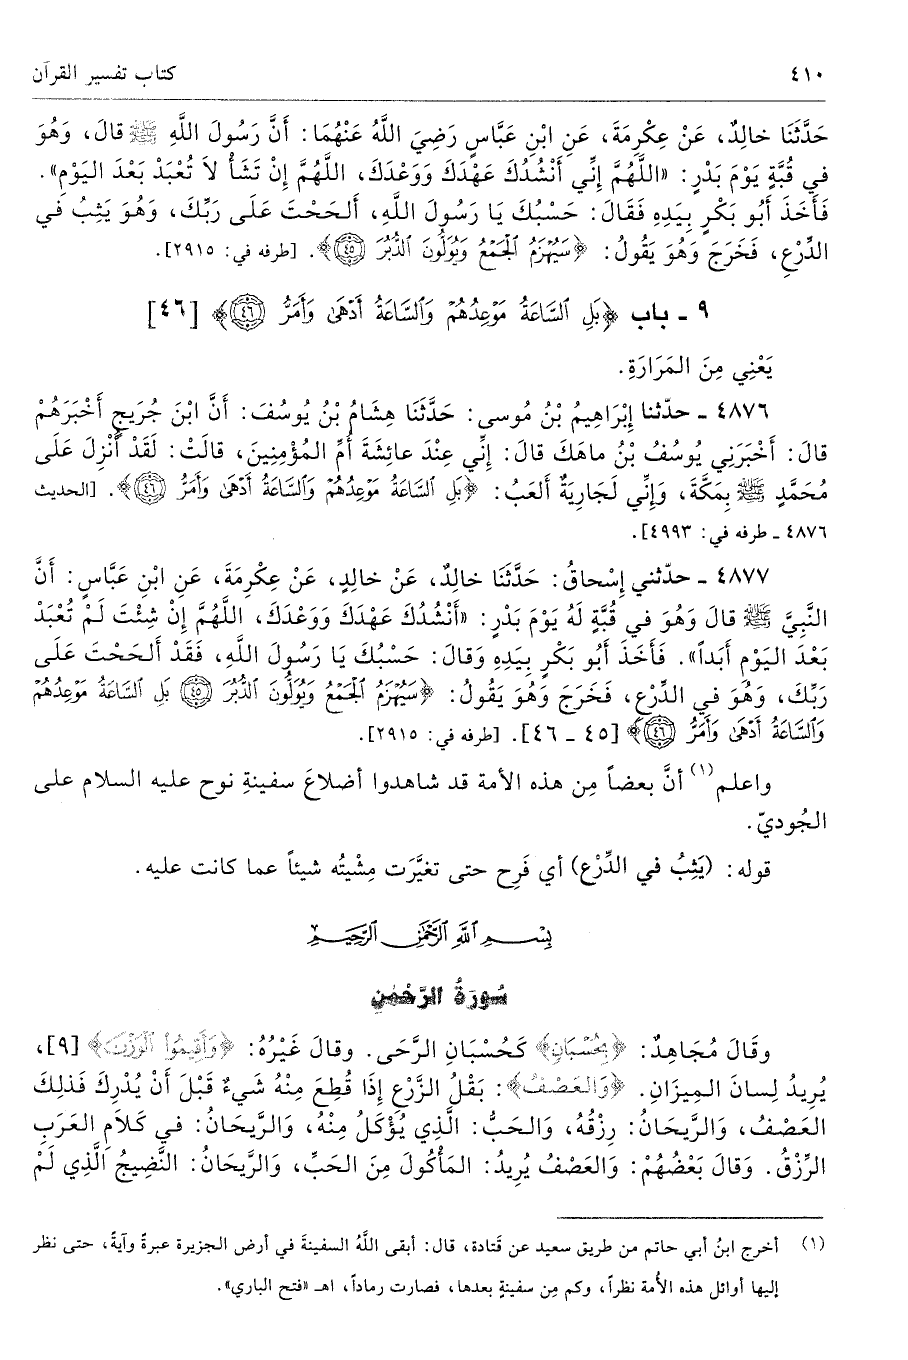 ٤١٠ كتاب تفسير القرآن
حَدَّثَنَا خالِدٌ، عَنْ عِكْرِمَةَ، عَنِ ابْنِ عَبَّاسٍ رَضِيَ اللَّهُ عَنْهُمَا: أَنَّ رَسُولَ اللَّهِ ﷺ قالَ، وَهُوَ
في قُبَّةٍ يَوْمَ بَدْرٍ: «اللَّهُمَّ إِنِّي أَنْشُدُكَ عَهْدَكَ وَوَعْدَكَ، اللَّهُمَّ إِنْ تَشَأْ لاَ تُعْبَدْ بَعْدَ اليَوْمِ».
فَأَخَذَ أَبُو بَكْرٍ بِيَدِهِ فَقَالَ: حَسْبُكَ يَا رَسُولَ اللَّهِ، أَلحَحْتَ عَلَى رَبِّكَ، وَهُوَ يَثِبُ في
الدِّرْعِ، فَخَرَجَ وَهُوَ يَقُولُ: ﴿سَيُهْزَمُ ٱلْجَمْعُ وَيُوَلُّونَ ٱلدُّبُرَ ٤٥﴾. [طرفه في: ٢٩١٥].
٩ ـ باب ﴿بَلِ ٱلسَّاعَةُ مَوْعِدُهُمْ وَٱلسَّاعَةُ أَدْهَىٰ وَأَمَرُّ ٤٦﴾ [٤٦]
يَعْنِي مِنَ المَرَارَةِ.
٤٨٧٦ ـ حدّثنا إِبْرَاهِيمُ بْنُ مُوسى: حَدَّثَنَا هِشَامُ بْنُ يُوسُفَ: أَنَّ ابْنَ جُرَيجٍ أَخْبَرَهُمْ
قالَ: أَخْبَرَنِي يُوسُفُ بْنُ ماهَكَ قالَ: إِنِّي عِنْدَ عائِشَةَ أُمِّ المُؤْمِنِينَ، قالَتْ: لَقَدْ أُنْزِلَ عَلَى
مُحَمَّدٍ ﷺ بِمَكَّةَ، وَإِنِّي لَجَارِيَةٌ أَلعَبُ: ﴿بَلِ ٱلسَّاعَةُ مَوْعِدُهُمْ وَٱلسَّاعَةُ أَدْهَىٰ وَأَمَرُّ ٤٦﴾. [الحديث
٤٨٧٦ ـ طرفه في: ٤٩٩٣].
٤٨٧٧ ـ حدّثني إِسْحاقُ: حَدَّثَنَا خالِدٌ، عَنْ خالِدٍ، عَنْ عِكْرِمَةَ، عَنِ ابْنِ عَبَّاسٍ: أَنَّ
النَّبِيَّ ﷺ قالَ وَهُوَ في قُبَّةٍ لَهُ يَوْمَ بَدْرٍ: «أَنْشُدُكَ عَهْدَكَ وَوَعْدَكَ، اللَّهُمَّ إِنْ شِئْتَ لَمْ تُعْبَدْ
بَعْدَ اليَوْمِ أَبَداً». فَأَخَذَ أَبُو بَكْرٍ بِيَدِهِ وَقَالَ: حَسْبُكَ يَا رَسُولَ اللَّهِ، فَقَدْ أَلحَحْتَ عَلَى
رَبِّكَ، وَهُوَ في الدِّرْعِ، فَخَرَجَ وَهُوَ يَقُولُ: ﴿سَيُهْزَمُ ٱلْجَمْعُ وَيُوَلُّونَ ٱلدُّبُرَ ٤٥ بَلِ ٱلسَّاعَةُ مَوْعِدُهُمْ
وَٱلسَّاعَةُ أَدْهَىٰ وَأَمَرُّ ٤٦﴾ [٤٥ ـ ٤٦]. [طرفه في: ٢٩١٥].
واعلم(١) أنَّ بعضاً مِن هذه الأمة قد شاهدوا أضلاعَ سفينةِ نوح عليه السلام على
الجُوديّ.
قوله: (يَثِبُ في الدِّرْع) أي فَرِح حتى تغيَّرَت مِشْيتُه شيئاً عما كانت عليه.
بِسْمِ ٱللَّهِ ٱلرَّحْمَٰنِ ٱلرَّحِيمِ
سُورَةُ الرَّحْمٰنِ
وقَالَ مُجَاهِدٌ: ﴿بِحُسْبَانٍ﴾ كَحُسْبَانِ الرَّحَى. وقالَ غَيْرُهُ: ﴿وَأَقِيمُوا ٱلْوَزْنَ﴾ [٩]،
يُرِيدُ لِسانَ المِيزَانِ. ﴿وَالعَصْفُ﴾: بَقْلُ الزَّرْعِ إِذَا قُطِعَ مِنْهُ شَيءٌ قَبْلَ أَنْ يُدْرِكَ فَذلِكَ
العَصْفُ، وَالرَّيحَانُ: رِزْقُهُ، وَالحَبُّ: الَّذِي يُؤْكَلُ مِنْهُ، وَالرَّيحَانُ: في كَلاَمِ العَرَبِ
الرِّزْقُ. وَقالَ بَعْضُهُمْ: وَالعَصْفُ يُرِيدُ: المَأْكُولَ مِنَ الحَبِّ، وَالرَّيحَانُ: النَّضِيجُ الَّذِي لَمْ
(١) أخرج ابنُ أبي حاتم من طريق سعيد عن قَتادة، قال: أبقى اللَّهُ السفينةَ في أرض الجزيرة عبرةً وآيةً، حتى نظر
إليها أوائل هذه الأُمة نظراً، وكم مِن سفينةٍ بعدها، فصارت رماداً، اهـ «فتح الباري».